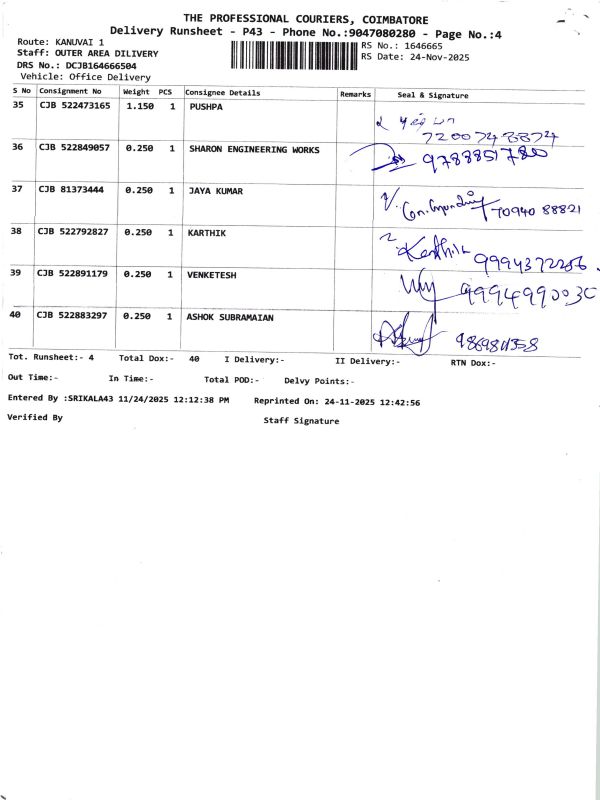 THE PROFESSIONAL COURIERS, COIMBATORE
Delivery Runsheet - P43 - Phone No.:9047080280 - Page No.:4
Route: KANUVAI 1
Staff: OUTER AREA DILIVERY
DRS No.: DCJB164666504
Vehicle: Office Delivery
RS No.: 1646665
RS Date: 24-Nov-2025
S No Consignment No Weight PCS Consignee Details Remarks Seal & Signature
35 CJB 522473165 1.150 1 PUSHPA
7200748874
36 CJB 522849057 0.250 1 SHARON ENGINEERING WORKS 9788851780
37 CJB 81373444 0.250 1 JAYA KUMAR 70940 88821
38 CJB 522792827 0.250 1 KARTHIK Karthik 9994372256
39 CJB 522891179 0.250 1 VENKETESH 999499003C
40 CJB 522883297 0.250 1 ASHOK SUBRAMAIAN
Tot. Runsheet:- 4 Total Dox:- 40 I Delivery:- II Delivery:- RTN Dox:-
Out Time:- In Time:- Total POD:- Delvy Points:-
Entered By :SRIKALA43 11/24/2025 12:12:38 PM Reprinted On: 24-11-2025 12:42:56
Verified By Staff Signature